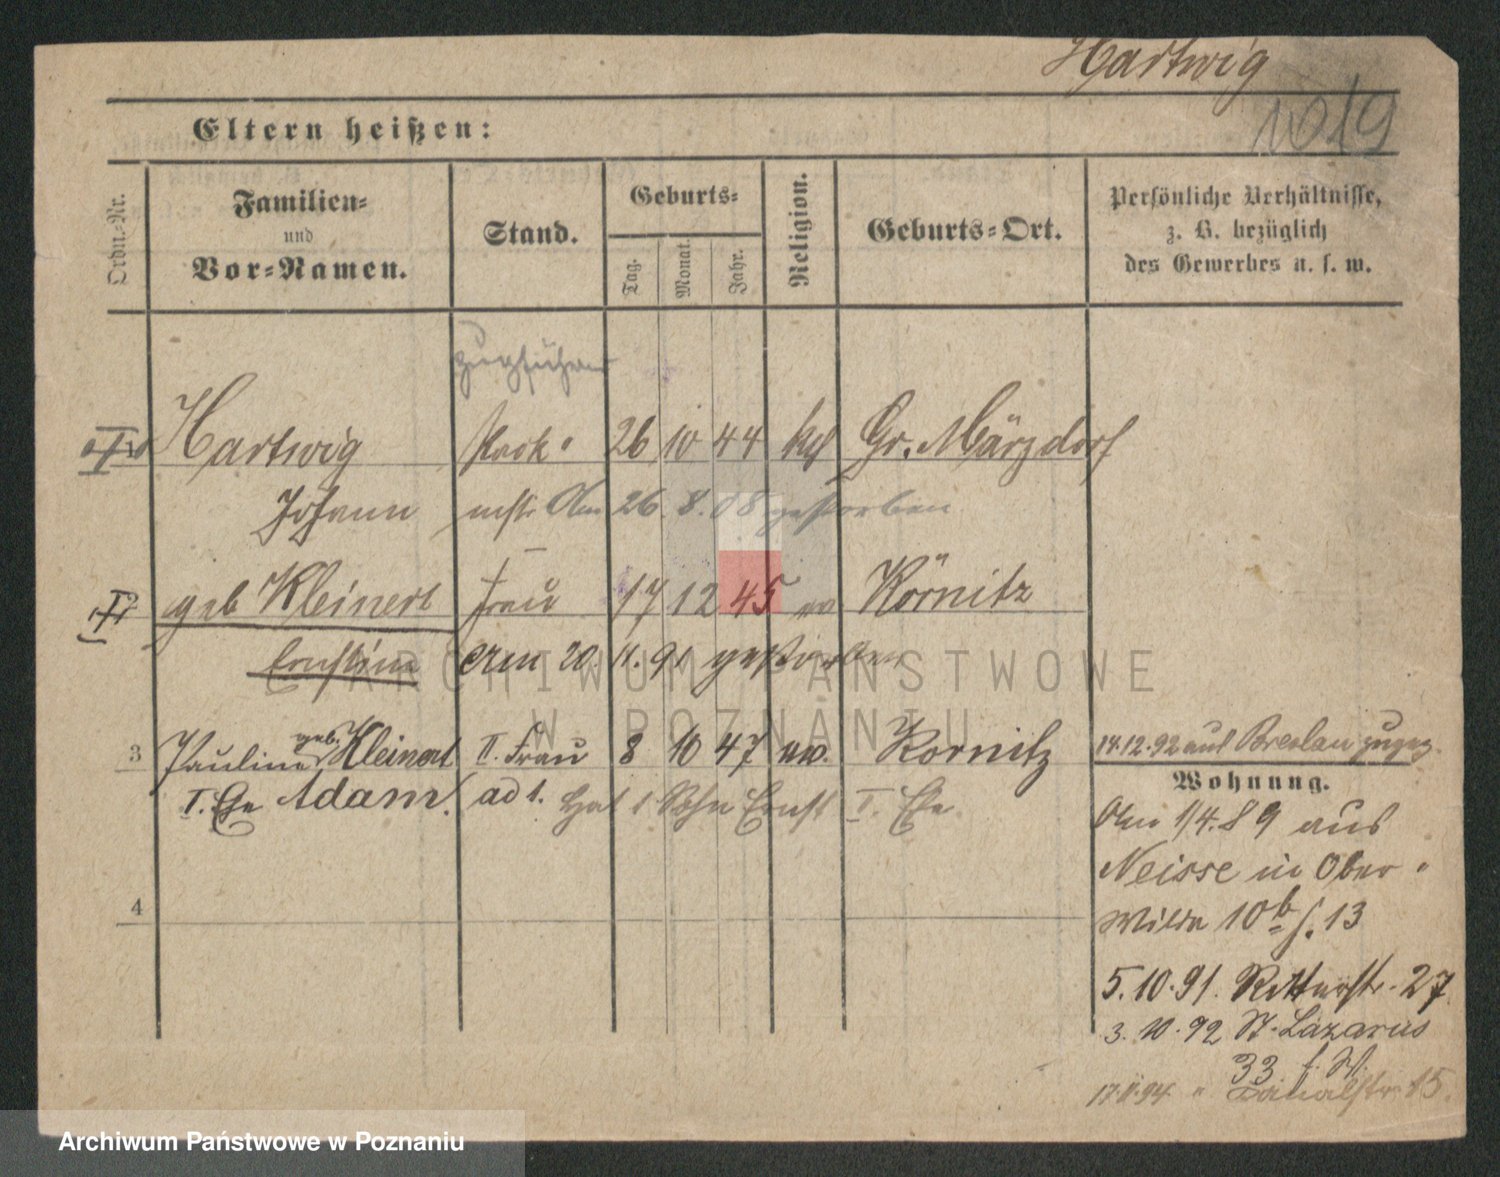 Hartwig
1019
Eltern heißen:
Ordn.-Nr.
Familien-
und
Vor-Namen.
Stand.
Geburts-
Tag.
Monat.
Jahr.
Religion.
Geburts-Ort.
Persönliche Verhältnisse,
z. B. bezüglich
des Gewerbes u. s. w.
Zugführer
Hartwig Pack- 26 10 44 kth Gr. Märzdorf
Johann mstr Am 26. 8. 08 gestorben
2 geb Kleinert Frau 17 12 45 ev Körnitz
Ernstine Am 20. 11. 91 gestorben
3 Pauline geb. Kleinert II. Frau 8 10 47 ev. Kornitz
I. Ehe Adam. ad 1. Hat 1 Sohn Ernst I. Ehe
4
14.12.92 aus Breslau zugez.
Wohnung.
Am 1/4.89 aus
Neisse in Ober-
Wilda 10b f. 13
5.10.91. Ritterstr. 27
3.10.92 St. Lazarus
33
17.11.94 " Kanalstr. 15.
ARCHIWUM PAŃSTWOWE
W POZNANIU
Archiwum Państwowe w Poznaniu